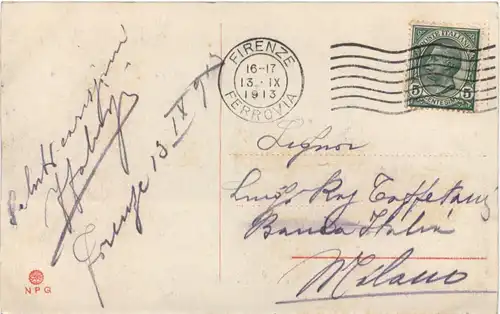 Saluti carissimi
Firenze 13 IX 913
FIRENZE
16-17
13 · IX
1913
FERROVIA
POSTE ITALIANE
5 5
CENTESIMI
Signor
Luigi Rag
Banca Italia
Milano
NPG